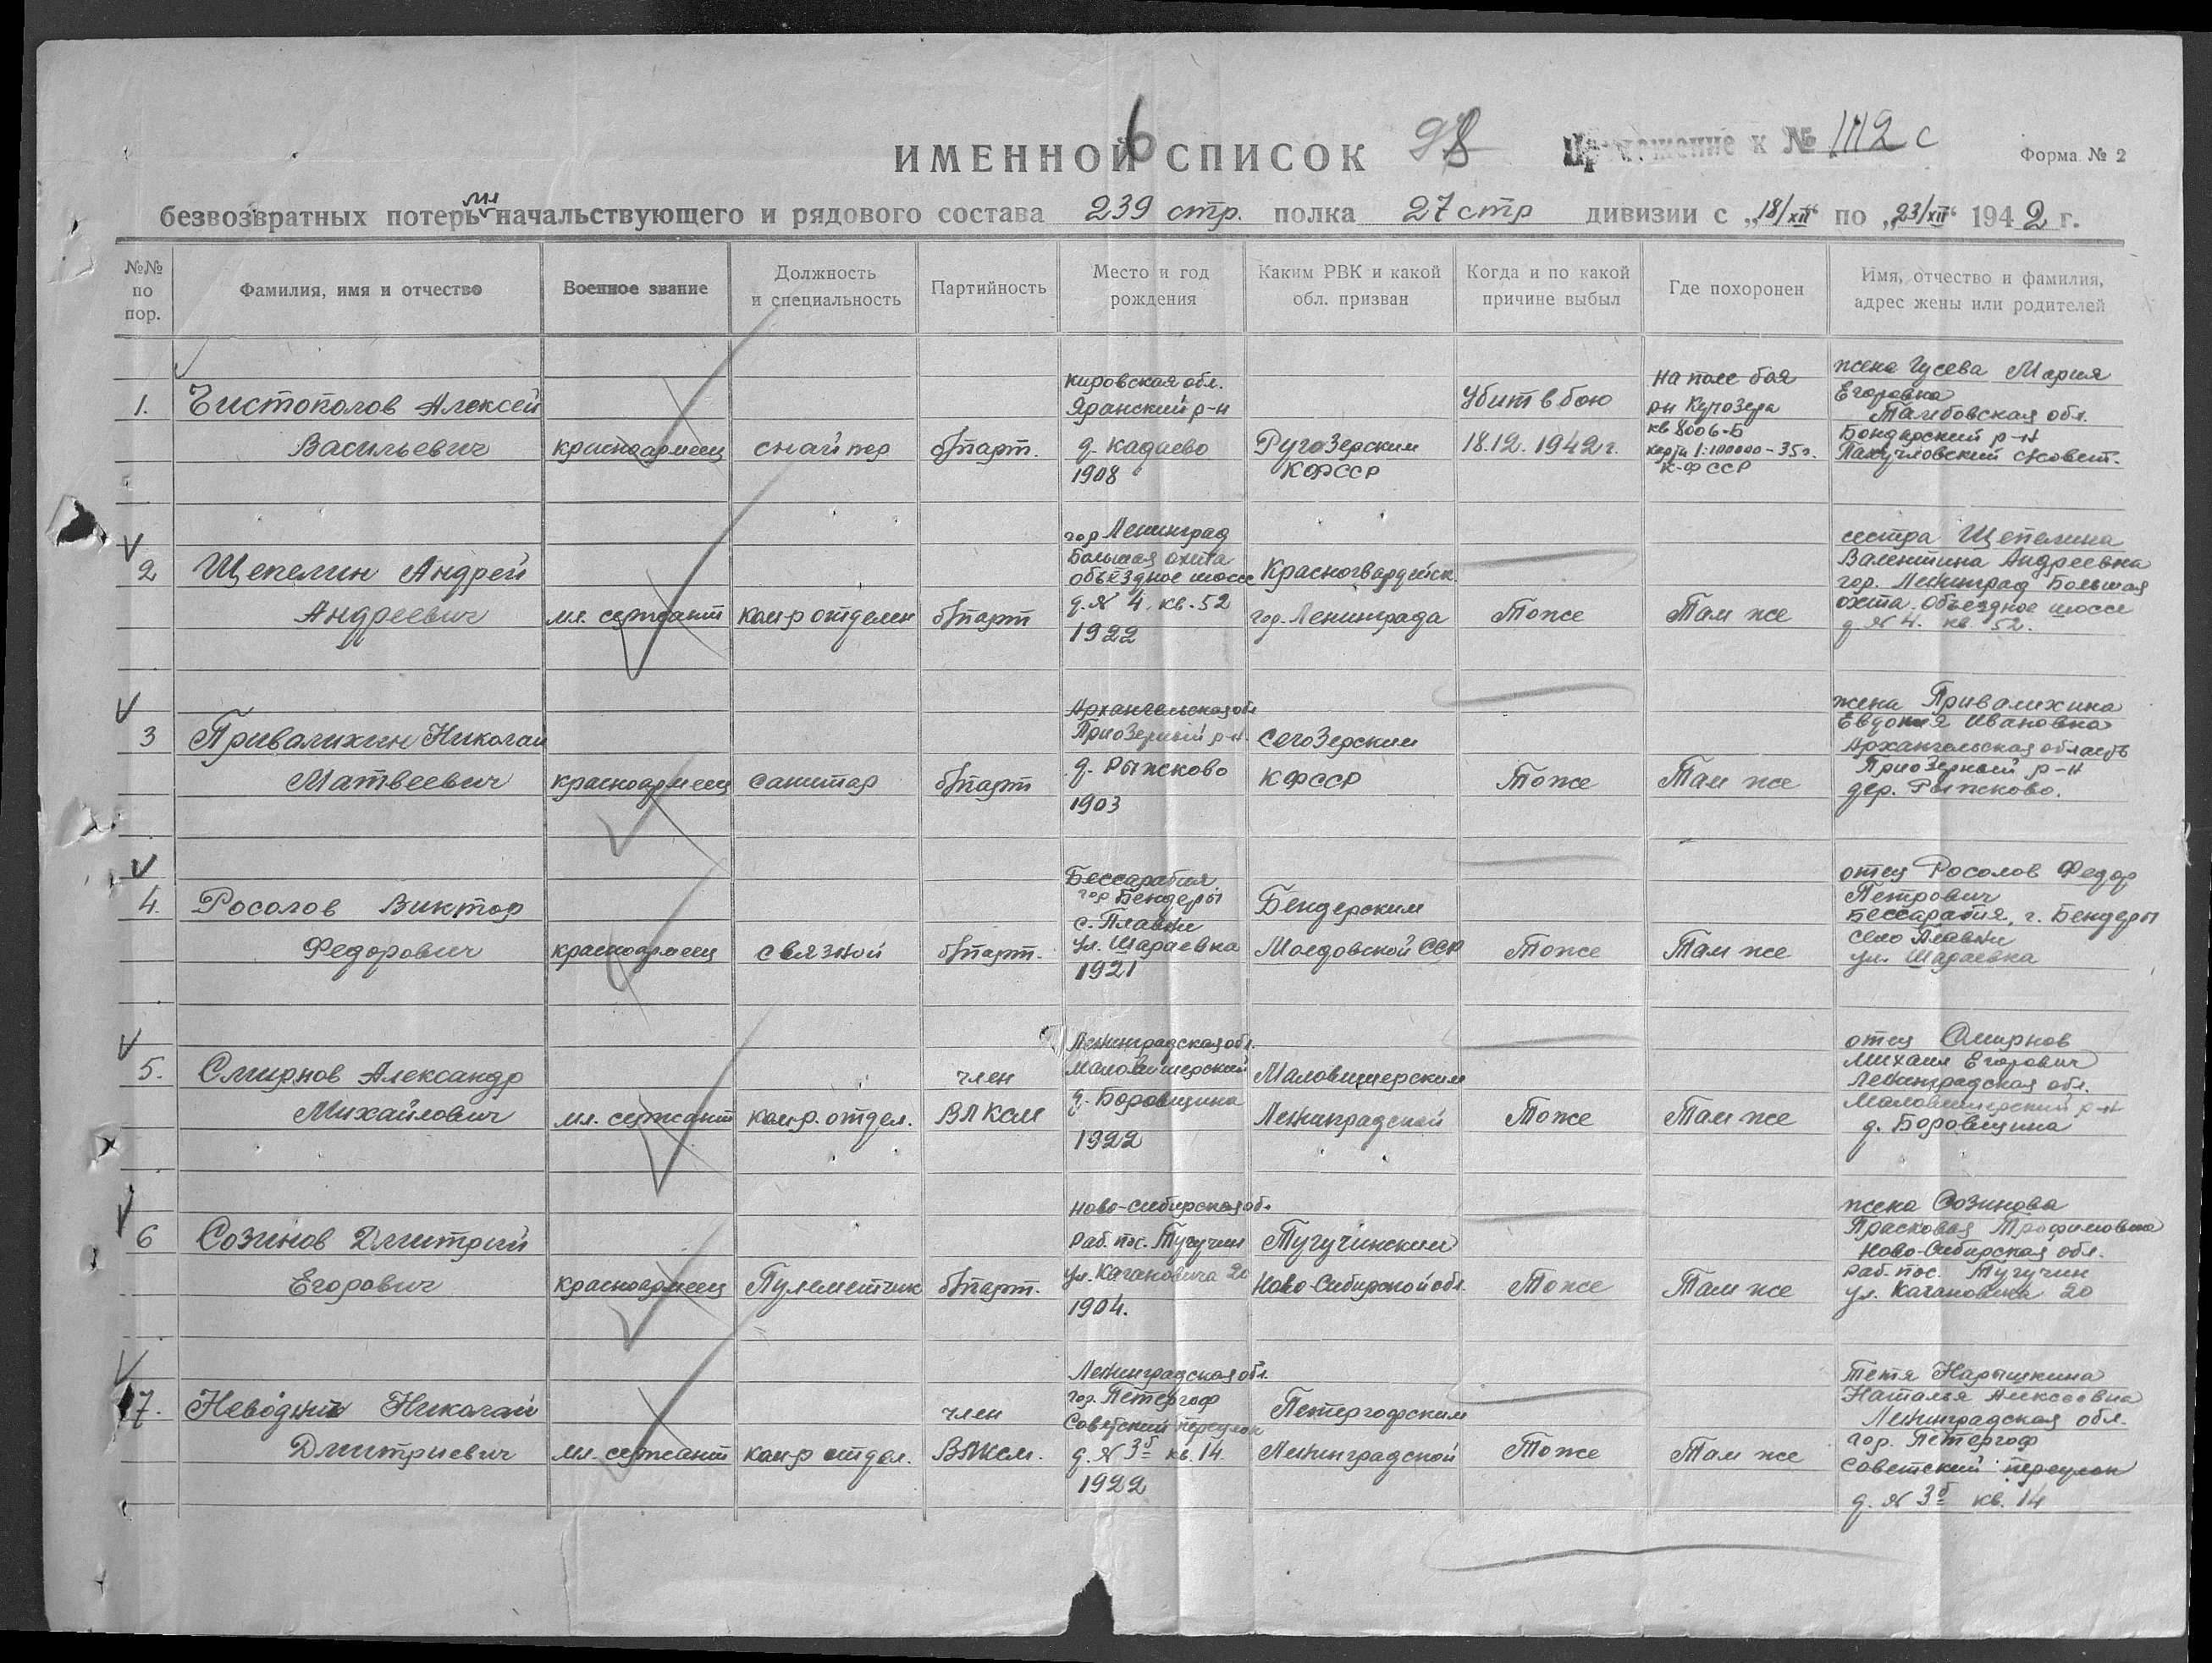 6
ИМЕННОЙ СПИСОК 98 Приложение к № 1112 с
Форма № 2
безвозвратных потерь мл начальствующего и рядового состава 239 стр. полка 27 стр дивизии с „18/XII“ по „23/XII“ 1942 г.
№№ по пор.
Фамилия, имя и отчество
Военное звание
Должность и специальность
Партийность
Место и год рождения
Каким РВК и какой обл. призван
Когда и по какой причине выбыл
Где похоронен
Имя, отчество и фамилия, адрес жены или родителей
1.
Чистополов Алексей
Васильевич
красноармеец
снайпер
б/парт.
Кировская обл.
Яранский р-н
д. Кадаево
1908
Ругозерским
КФССР
Убит в бою
18.12.1942 г.
На поле боя
кв 8006-Б
карта 1:100000-35г.
К-ФССР
жена Гусева Мария
Егоровна
Тамбовская обл.
Бондарский р-н
2
Щепелин Андрей
Андреевич
мл. сержант
ком-р отделен
б/парт
гор Ленинград
Большая охта
объездное шоссе
д. № 4. кв. 52
1922
Красногвардейск.
гор. Ленинграда
Тоже
Там же
сестра Щепелина
Валентина Андреевна
гор. Ленинград Большая
охта. Объездное шоссе
д № 4. кв 52.
3
Привалихин Николай
Матвеевич
красноармеец
санитар
б/парт
Архангельская обл
Приозерный р-н.
д. Рыжково
1903
Сегозерским
КФССР
Тоже
Там же
жена Привалихина
Евдокия Ивановна
Архангельская область
Приозерный р-н
дер. Рыжково.
4.
Росолов Виктор
Федорович
красноармеец
связной
б/парт.
Бессарабия
гор Бендеры
с. Плавни
ул. Шараевка
1921
Бендерским
Молдовской ССР
Тоже
Там же
отец Росолов Федор
Петрович
Бессарабия, г. Бендеры
село Плавни
ул. Шараевка
5.
Смирнов Александр
Михайлович
мл. сержант
ком-р. отдел.
член
ВЛКСМ
Ленинградская обл.
Маловишерский
д. Боровщина
1922
Маловишерским
Ленинградской
Тоже
Там же
отец Смирнов
Михаил Егорович
Ленинградская обл.
Маловишерский р-н
д. Боровщина
6
Созинов Дмитрий
Егорович
красноармеец
Пулеметчик
б/парт.
Ново-Сибирская обл.
раб. пос. Тугучин
ул. Кагановича 20
1904.
Тугучинским
Ново-Сибирской обл.
Тоже
Там же
жена Созинова
Прасковья Трофимовна
Ново-Сибирская обл.
раб. пос. Тугучин
ул. Кагановича 20
7.
Николай
Дмитриевич
мл. сержант
ком-р отдел.
член
ВЛКСМ.
Ленинградская обл.
гор. Петергоф
Советский переулок
д. № 3б кв. 14.
1922
Петергофским
Ленинградской
Тоже
Там же
Тетя Нарышкина
Наталья Алексеевна
Ленинградская обл.
гор. Петергоф
Советский переулок
д. № 3б кв. 14